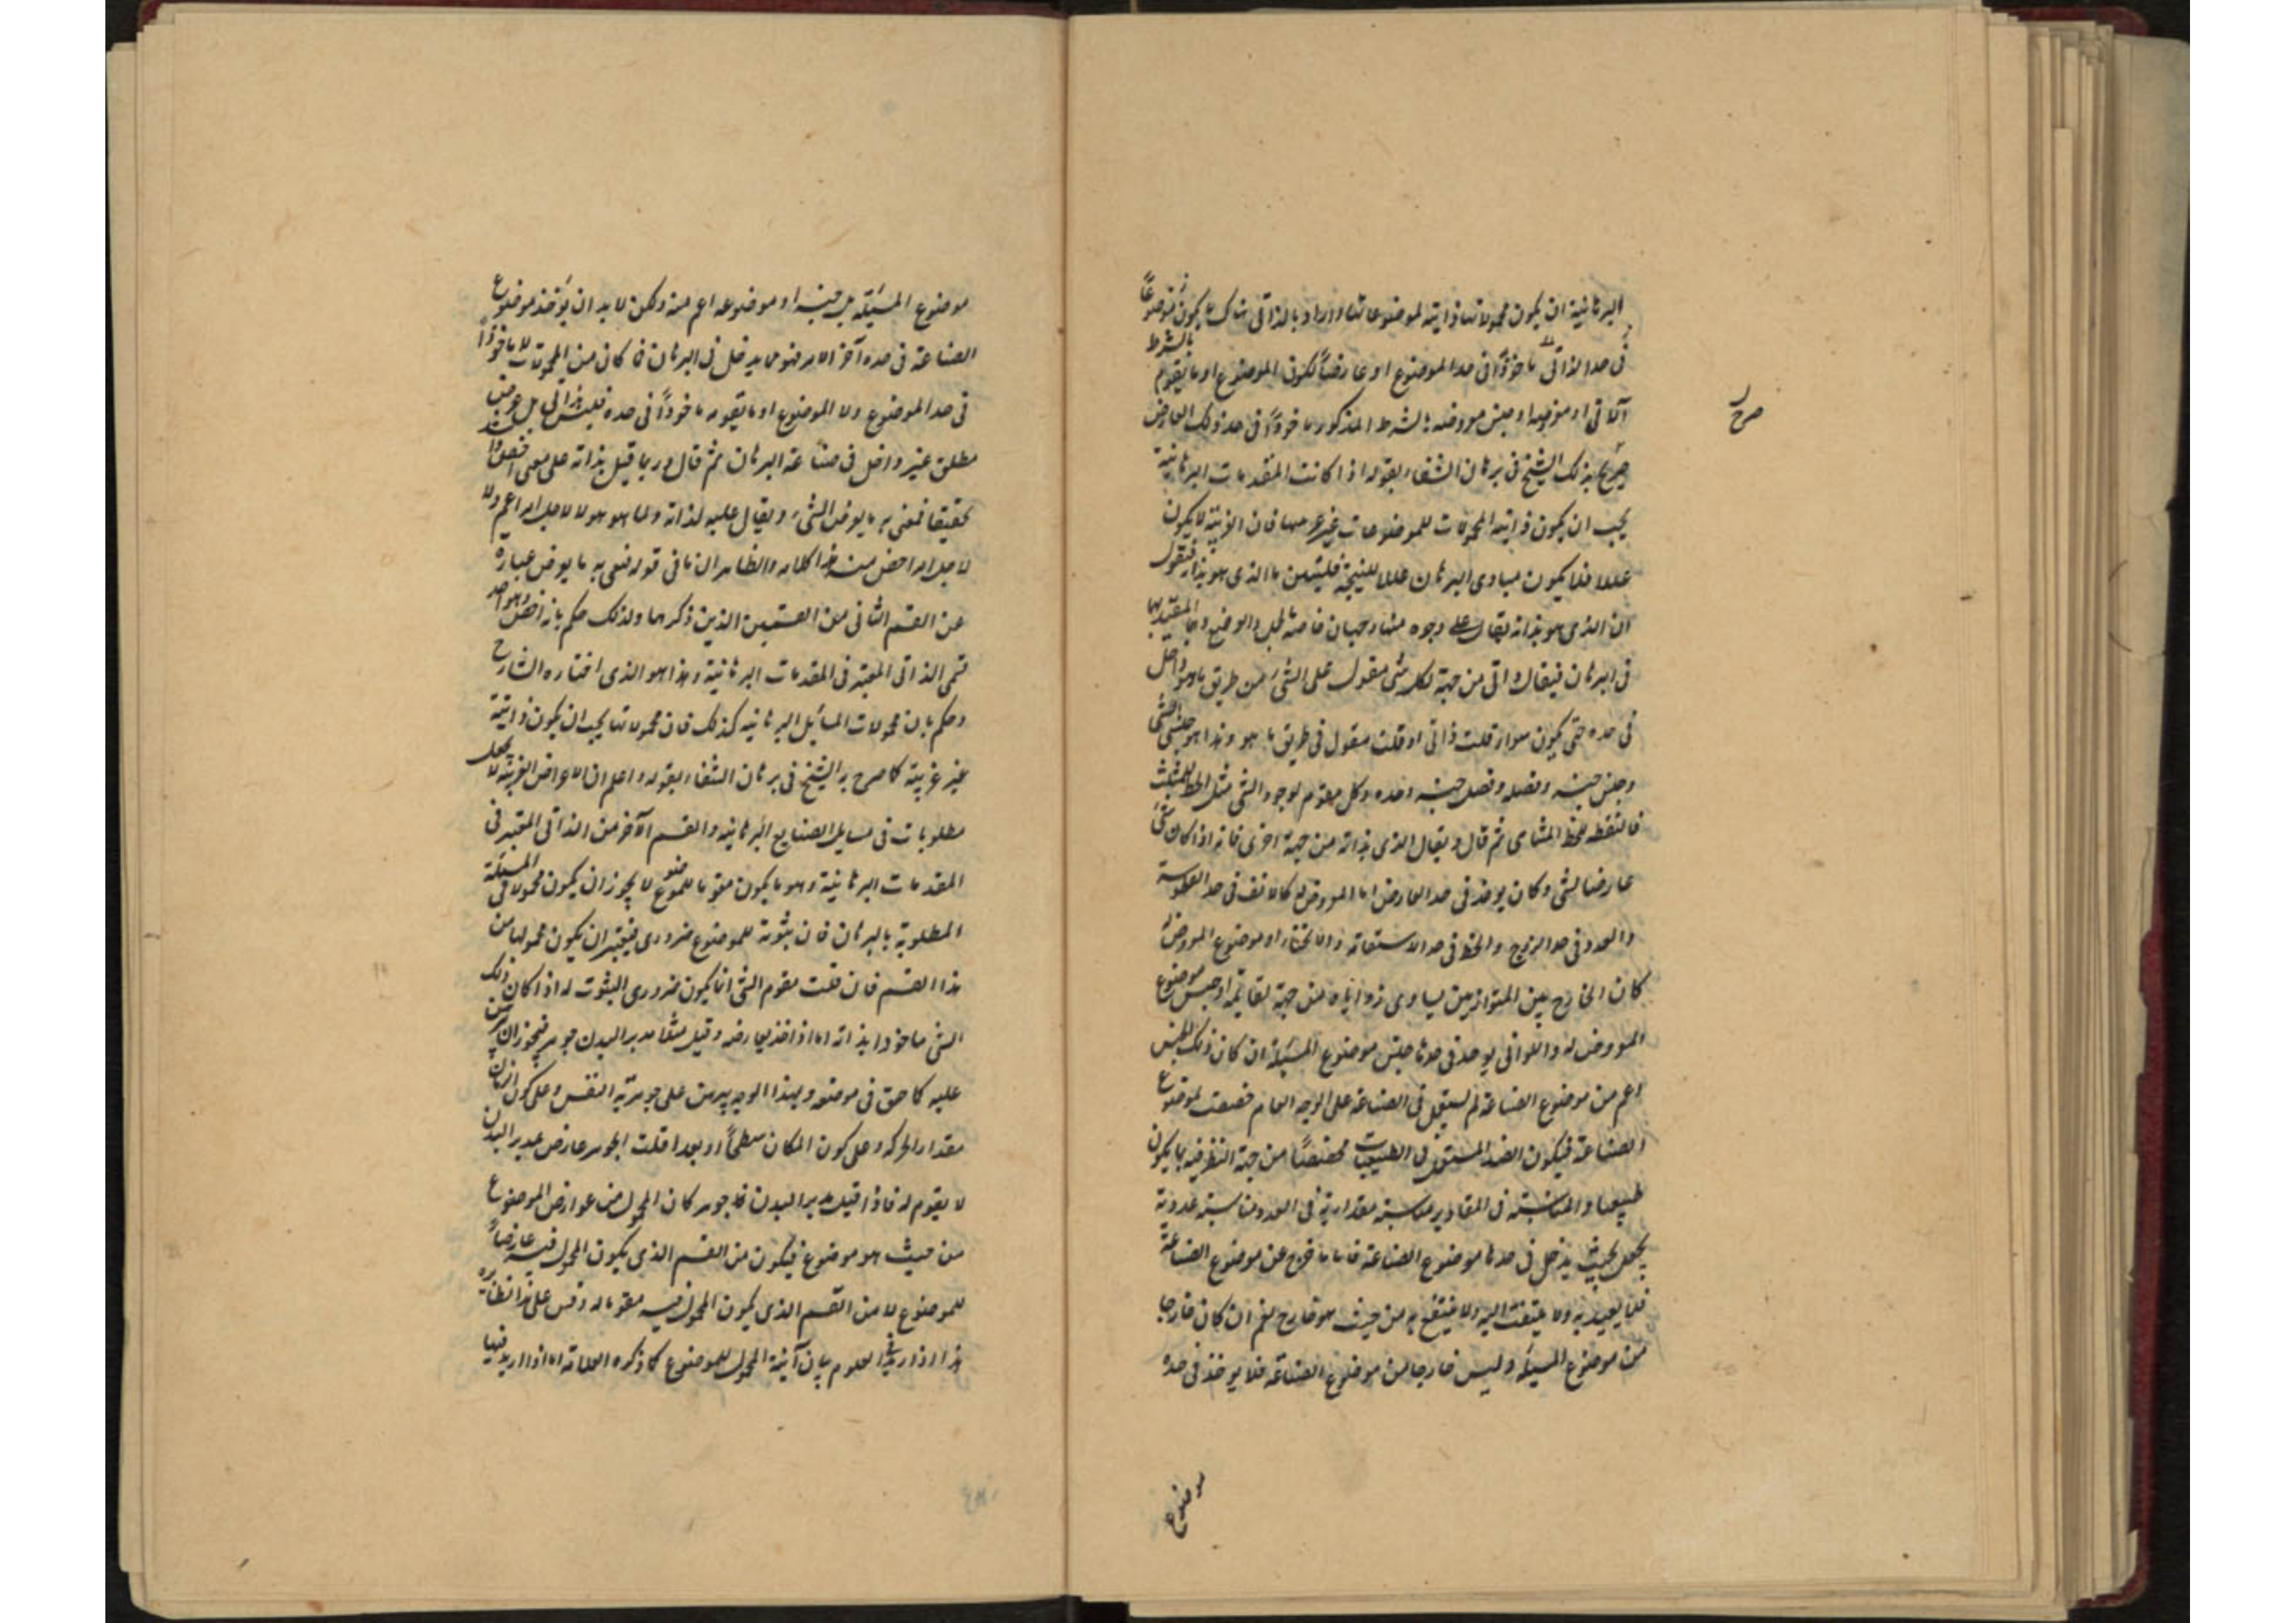 البرهانية ان يكون محمولاتها ذاتية لموضوعاتها واراد بالذاتى هناك ما يكون موضوعاً
فى حد الذاتى ماخوذاً فى حد الموضوع او عارضاً لكون الموضوع او ما يقوم
بالشرط
او جنس معروضه بالشرط المذكور ماخوذاً فى حد ذلك العارض
صرح
صرح بذلك الشيخ فى برهان الشفاء بقوله اذا كانت المقدمات البرهانية
يجب ان يكون ذاتية المحمولات للموضوعات غير غريبها فان الغريبة لا يكون
عللا فلا يكون مبادى البرهان عللا للنتيجة فليتبين ما الذى هو بذاته فنقول
ان الذى هو بذاته يقال على وجوه منها وجهان خاصة بالحمل والوضع
فى البرهان فيقال ذاتى من جهة لكل شى مقول على الشئ من طريق ما هو داخل
فى حده حتى يكون سواء قلت ذاتى او قلت مقول فى طريق ما هو وهذا هو جنس الشئ
وجنس جنسه وفصله وفصل جنسه وحده وكل مقوم لوجود الشئ مثل الخط للمثلث
والنقطة للخط المتناهى ثم قال ويقال الذى بذاته من جهة اخرى فانه اذا كان شئ
عارضا لشئ وكان يوخذ فى حد العارض اما المعروض له كالانف فى حد الفطوسة
والعدد فى حد الزوج والخط فى حد الاستقامة والانحناء او موضوع المعروض له
كان الخارج بين المتوازيين يساوى زواياه من جهة لقائمة او جنس موضوع
المعروض له واللواتى يوخذ فى حدها جنس موضوع المسئلة ان كان ذلك الجنس
اعم من موضوع الصناعة لم يستعمل فى الصناعة على الوجه العام فصصت لموضوع
الصناعة فيكون الضد المستعمل فى الطبيعيات مختصاً من جهة النظر فيه بما يكون
طبيعيا والمناسبة فى المقادير مناسبة مقدارية فى العدد مناسبة عددية
يجعل بحيث يدخل فى حدها موضوع الصناعة فاما ما خرج عن موضوع الصناعة
فلا يعيد به ولا يلتفت اليه ولا ينتفع به من حيث هو خارج نعم ان كان خارجا
من موضوع المسئلة وليس خارجا من موضوع الصناعة فلا يوخذ فى حده
موضوع
موضوع المسئلة بل جنسه او موضوعه اعم منه ولكن لا بد ان يوخذ موضوع
الصناعة فى حده آخر الامر فهو مما يدخل فى البرهان فما كان من المحمولات لا ماخوذاً
فى حد الموضوع ولا الموضوع او ما يقومه ماخوذاً فى حده فليس بذاتى بل عرض
مطلق غير داخل فى صناعة البرهان ثم قال وربما قيل بذاته على معنى اخص
تحقيقا فمعنى به ما يعرض الشئ ويقال عليه لذاته ولما هو هو لا لاجل امر اعم ولا
لاجل امر اخص منه هذا كلامه والظاهر ان ما فى قوله فنعنى به ما يعرض عبارة
عن القسم الثانى من القسمين الذين ذكرهما ولذلك حكم بانه اخص وهو احد
قسمى الذاتى المعتبر فى المقدمات البرهانية وهذا هو الذى اختاره الشارح
وحكم بان محمولات المسائل البرهانية كذلك فان محمولاتها يجب ان يكون ذاتية
غير غريبة كما صرح به الشيخ فى برهان الشفاء بقوله واعلم ان الاعراض الغريبة لا يجعل
مطلوبات فى مسايل الصنايع البرهانية والقسم الآخر من الذاتى المعتبر فى
المقدمات البرهانية وهو ما يكون مقوما للموضوع لا يجوز ان يكون محمولا فى المسئلة
المطلوبة بالبرهان فان ثبوته للموضوع ضرورى فيعتبر ان يكون محمولها من
هذا القسم فان قلت مقوم الشئ انما يكون ضرورى الثبوت له اذا كان ذلك
الشئ ماخوذا بذاته اما اذا اخذ بعارضه وقيل مثلا مدبر البدن جوهر فيجوز ان يبرهن
عليه كما حق فى موضعه وبهذا الوجه يبرهن على جوهرية النفس وعلى كون الزمان
مقدار الحركة وعلى كون المكان سطحاً او بعدا قلت الجوهر عارض لمدبر البدن
لا يقوم له فاذا قيل مدبر البدن جوهر كان المحمول من عوارض الموضوع
من حيث هو موضوع فيكون من القسم الذى يكون المحمول فيه عارضاً
للموضوع لا من القسم الذى يكون المحمول فيه مقوما له وقس على هذا نظايره
هذا اذا اريد فى العلوم بيان آنية المحمول للموضوع كما ذكره العلامة اما اذا اريد فيها